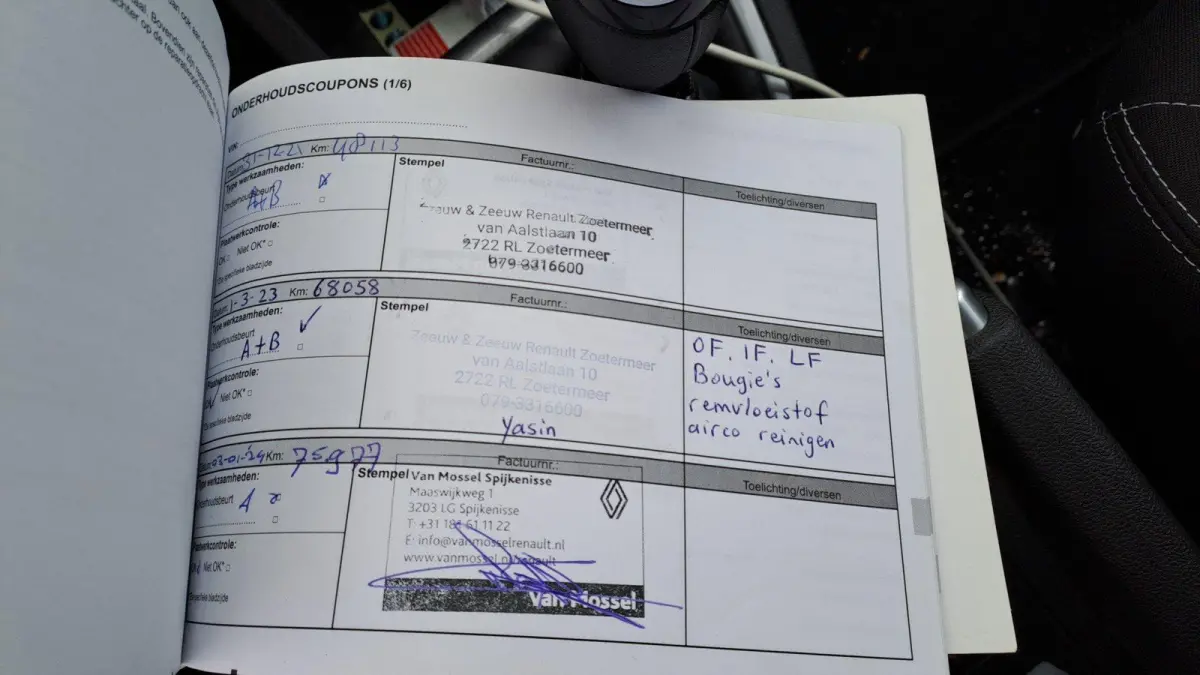 ONDERHOUDSCOUPONS (1/6)
VIN:
Datum: 31-12-21 Km: 48113
Type werkzaamheden:
Onderhoudsbeurt
A+B
Plaatwerkcontrole:
OK Niet OK*
*Zie specifieke bladzijde
Stempel
Factuurnr.:
Zeeuw & Zeeuw Renault Zoetermeer
van Aalstlaan 10
2722 RL Zoetermeer
079-3316600
Toelichting/diversen
Datum: 1-3-23 Km: 68058
Type werkzaamheden:
Onderhoudsbeurt
A+B
Plaatwerkcontrole:
OK Niet OK*
*Zie specifieke bladzijde
Stempel
Factuurnr.:
Zeeuw & Zeeuw Renault Zoetermeer
van Aalstlaan 10
2722 RL Zoetermeer
079-3316600
Yasin
Toelichting/diversen
OF. IF. LF
Bougie's
remvloeistof
airco reinigen
03-01-24 Km: 75977
Type werkzaamheden:
Onderhoudsbeurt A
Plaatwerkcontrole:
OK Niet OK*
*Zie specifieke bladzijde
Stempel
Factuurnr.:
Van Mossel Spijkenisse
Maaswijkweg 1
3203 LG Spijkenisse
T: +31 181 61 11 22
E: info@vanmosselrenault.nl
www.vanmossel.nl/renault
Van Mossel
Toelichting/diversen